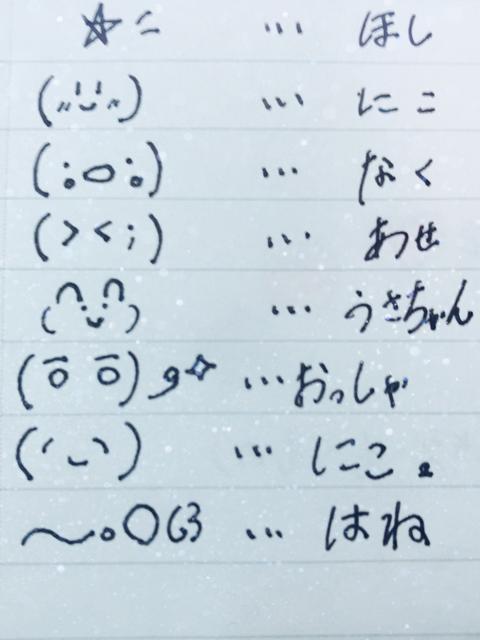 ☆ﾆ … ほし
(〃'‿'〃) … にこ
(;o;) … なく
(><;) … あせ
… うさちゃん
(ō ō)و✧ … おっしゃ
(´‿`) … にこ。
〜。○ … はね